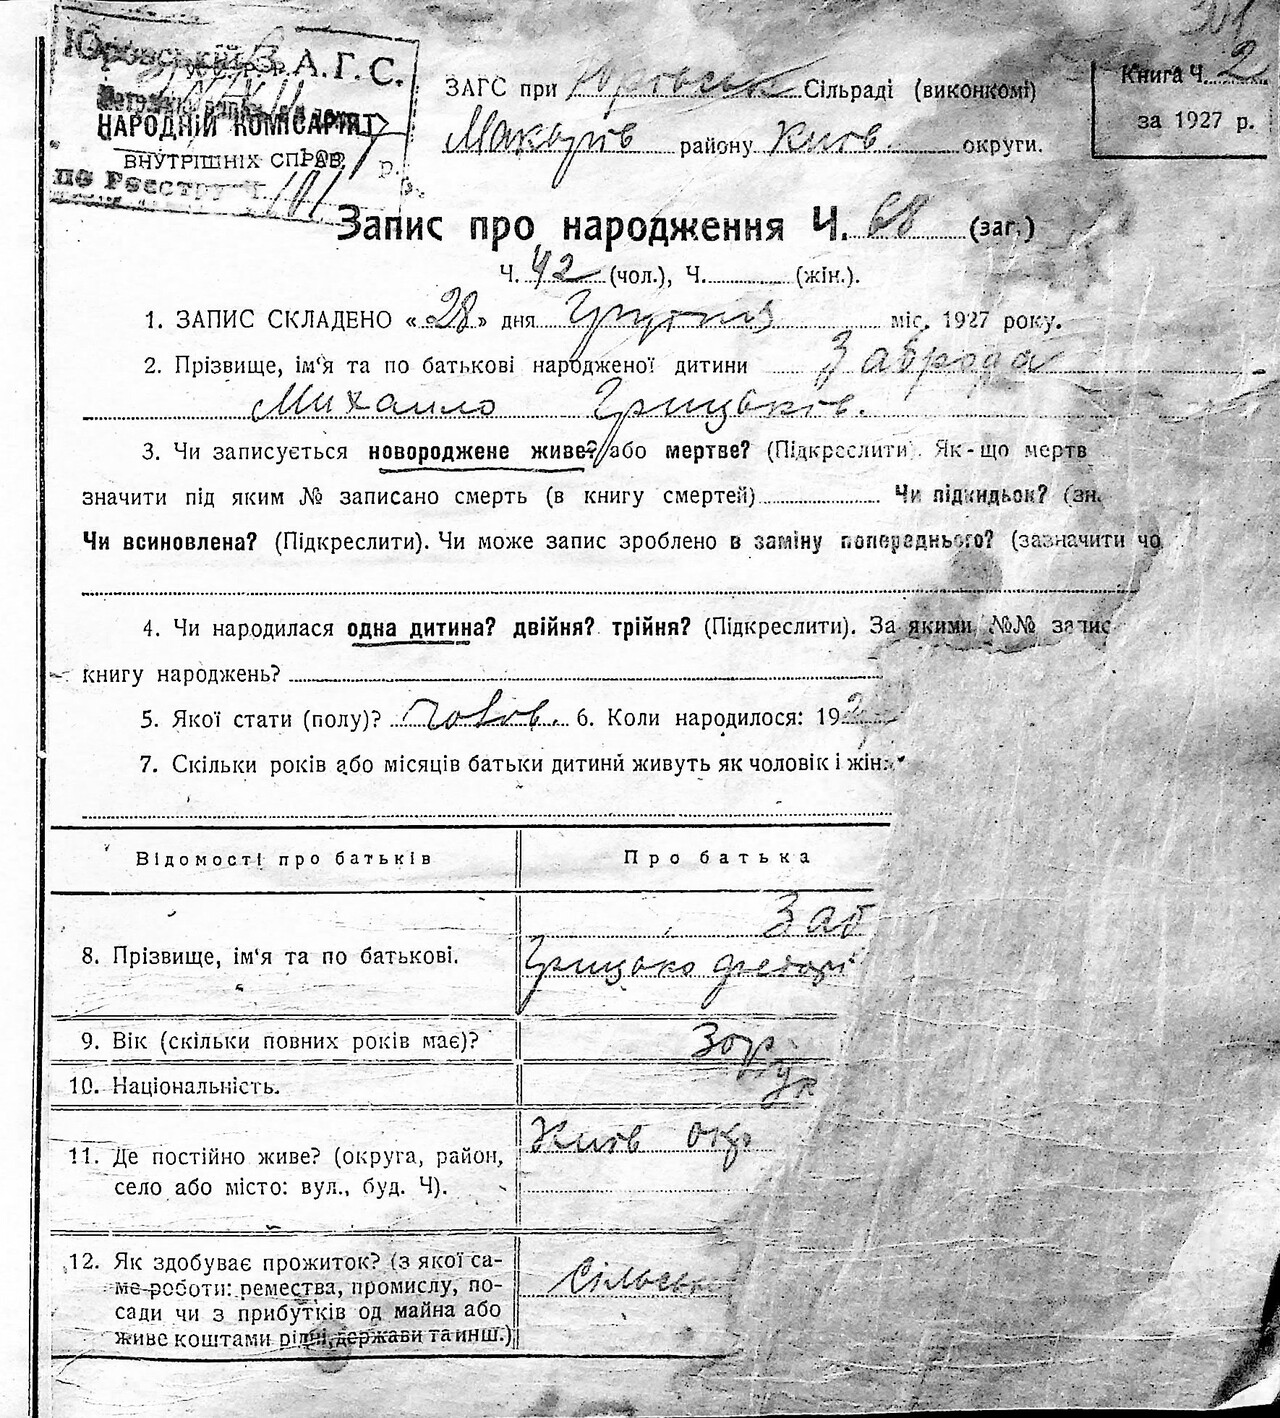 Юровський З.А.Г.С.
У.С.Р.Р.
НАРОДНІЙ КОМІСАРІЯТ
ВНУТРІШНІХ СПРАВ
р.
по Реєстру Ч. 101
ЗАГС при Юровськ Сільраді (виконкомі)
Макарів району Київ. округи.
Книга Ч. 2
за 1927 р.
Запис про народження Ч. 68 (заг.)
Ч. 42 (чол.), Ч. (жін.).
1. ЗАПИС СКЛАДЕНО «28» дня Грудня міс. 1927 року.
2. Прізвище, ім'я та по батькові народженої дитини Заброда
Михайло Грицьків.
3. Чи записується новороджене живе? або мертве? (Підкреслити). Як-що мертв
значити під яким № записано смерть (в книгу смертей) Чи підкидьок? (зн.
Чи всиновлена? (Підкреслити). Чи може запис зроблено в заміну попереднього? (зазначити чо
4. Чи народилася одна дитина? двійня? трійня? (Підкреслити). За якими №№ запис
книгу народжень?
5. Якої стати (полу)? чолов. 6. Коли народилося: 192
7. Скільки років або місяців батьки дитини живуть як чоловік і жін
Відомості про батьків
Про батька
8. Прізвище, ім'я та по батькові.
Заб
Грицько
9. Вік (скільки повних років має)?
10. Національність.
ук
11. Де постійно живе? (округа, район,
село або місто: вул., буд. Ч).
Київ окр
12. Як здобуває прожиток? (з якої са-
ме-роботи: ремества, промислу, по-
сади чи з прибутків од майна або
живе коштами рідні, держави та инш.)
Сільськ